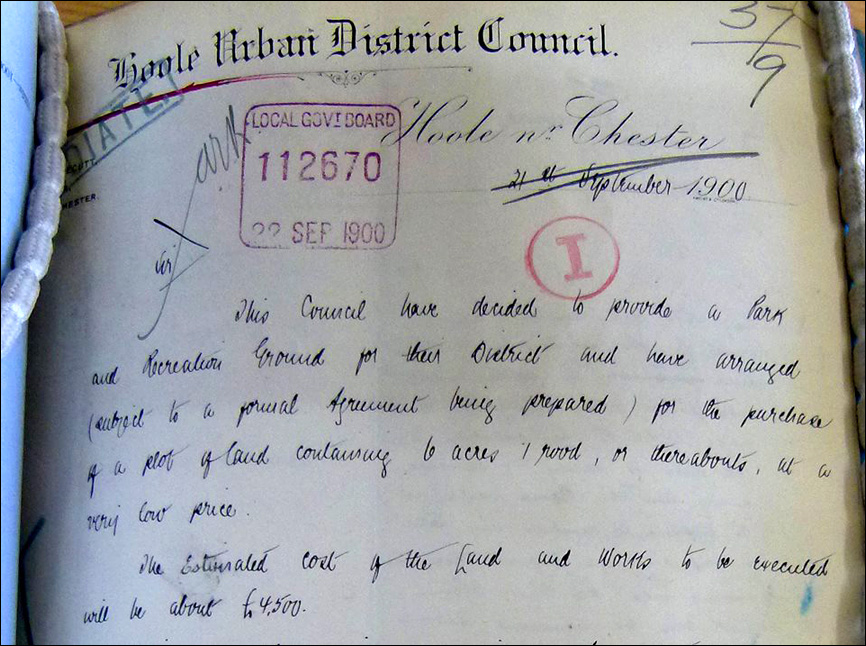 Hoole Urban District Council.
37/9
Hoole nr Chester
21st September 1900
LOCAL GOVT BOARD
112670
22 SEP 1900
Park
DIATED
HESTER.
I
Sir
This Council have decided to provide a Park
and Recreation Ground for their District and have arranged
(subject to a formal Agreement being prepared) for the purchase
of a plot of land containing 6 acres 1 rood, or thereabouts, at a
very low price.
The Estimated cost of the Land and Works to be executed
will be about £4,500.